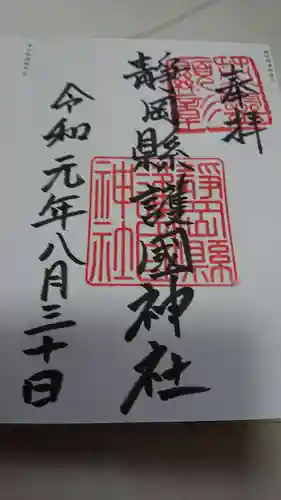 奉拝
靜岡縣護國神社
令和元年八月三十日
靜岡縣
護國
神社